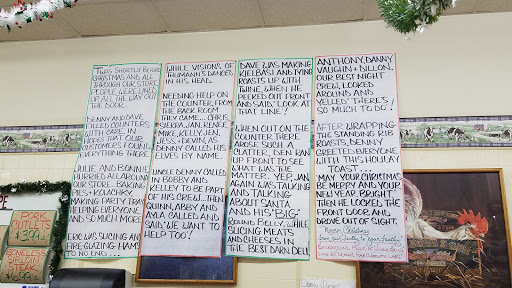 'TWAS SHORTLY BEFORE
CHRISTMAS AND ALL
THROUGH OUR STORE,
PEOPLE WERE LINED
UP ALL THE WAY OUT
THE DOOR.
DENNY AND DAVE
FILLED COUNTERS
WITH CARE, IN
HOPES THEIR
CUSTOMERS FOUND
EVERYTHING THERE.
JULIE AND BONNIE
HURRIED ALL AROUND
OUR STORE... BAKING
PIES + KOLACHKY,
MAKING PARTY TRAYS,
HELPING EVERYONE
AND SO MUCH MORE!
ERIC WAS SLICING AND
FIRE GLAZING HAMS
TO NO END....
WHILE VISIONS OF
THUMANN'S DANCED
IN HIS HEAD.
NEEDING HELP ON
THE COUNTER, FROM
THE BACK ROOM
THEY CAME... CHRIS,
SERDA, JAN, RENEE,
MIKE, KELLY, JEN,
JESS, + DEVIN, AS
DENNY CALLED HIS
ELVES BY NAME.
UNCLE DENNY CALLED
IN BOBBY AND
KELLEY TO BE PART
OF HIS CREW... THEN
QUINN, ABBY AND
AYLA CALLED AND
SAID "WE WANT TO
HELP TOO!"
DAVE WAS MAKING
KIELBASI AND TYING
ROASTS UP WITH
TWINE, WHEN HE
PEEKED OUT FRONT
AND SAID "LOOK AT
THAT LINE"!
WHEN OUT ON THE
COUNTER THERE
AROSE SUCH A
CLATTER, DEN RAN
UP FRONT TO SEE
WHAT WAS THE
MATTER. YEP, JAN
AGAIN WAS TALKING
AND TALKING
ABOUT SANTA
AND HIS "BIG"
ROUND BELLY, WHILE
SLICING MEATS
AND CHEESES IN
THE BEST DARN DELI.
ANTHONY, DANNY
VAUGHN + DILLON,
OUR BEST NIGHT
CREW, LOOKED
AROUND AND
YELLED "THERE'S
SO MUCH TO DO".
AFTER WRAPPING
THE STANDING RIB
ROASTS, DENNY
GREETED EVERYONE
WITH THIS HOLIDAY
TOAST....
MAY YOUR CHRISTMAS
BE MERRY AND YOUR
NEW YEAR BRIGHT,
THEN HE LOCKED THE
FRONT DOOR AND
DROVE OUT OF SIGHT.
Merry Christmas
from our family to your family!
PORK
CUTLETS
$3.99
BONELESS
SIRLOIN
STEAK
$6.99